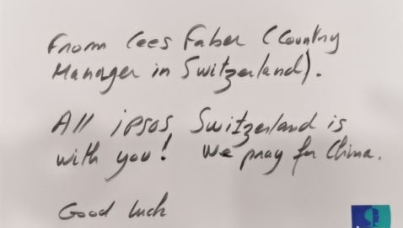 From Cees Faber (Country
Manager in Switzerland).
All ipsos Switzerland is
with you! We pray for China.
Good luck